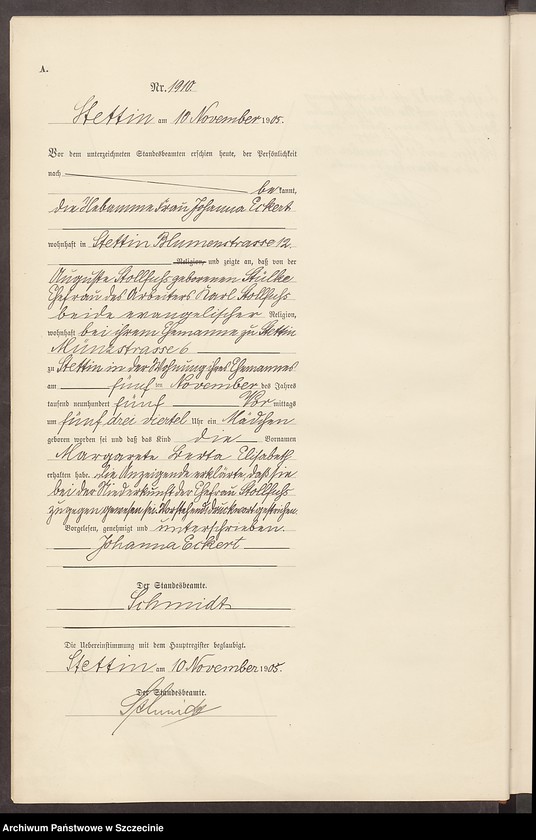 A.
Nr. 1910
Stettin am 10 November 1905.
Vor dem unterzeichneten Standesbeamten erschien heute, der Persönlichkeit
nach
be kannt,
die Hebamme Frau Johanna Eckert
wohnhaft in Stettin Blumenstrasse 12
Religion, und zeigte an, daß von der
Auguste Stollfuhs geborenen Stülke
Ehefrau des Arbeiters Karl Stollfuhs
beide evangelischer Religion,
wohnhaft bei ihrem Ehemanne zu Stettin
Münzstrasse 6
zu Stettin in der Wohnung ihres Ehemannes
am fünf ten November des Jahres
tausend neunhundert fünf Vor mittags
um fünf drei viertel Uhr ein Mädchen
geboren worden sei und daß das Kind die Vornamen
Margarete Berta Elisabeth
erhalten habe. Die Anzeigende erklärte, daß sie
bei der Niederkunft der Ehefrau Stollfuhs
zugegen gewesen sei. Vorstehend 1 Druckwort gestrichen.
Vorgelesen, genehmigt und unterschrieben.
Johanna Eckert
Der Standesbeamte.
Schmidt
Die Uebereinstimmung mit dem Hauptregister beglaubigt.
Stettin am 10 November 1905.
Der Standesbeamte.
Schmidt
Archiwum Państwowe w Szczecinie